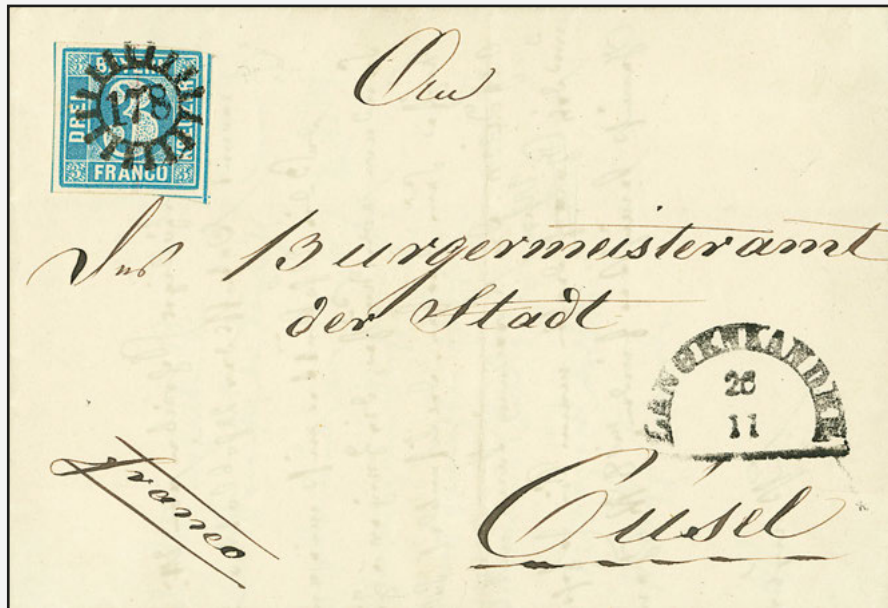 BAYERN
DREI
3
KREUZER
FRANCO
178
An
Das Burgermeisteramt
der Stadt
LANGENKANDEL
26
11
franco
Cusel